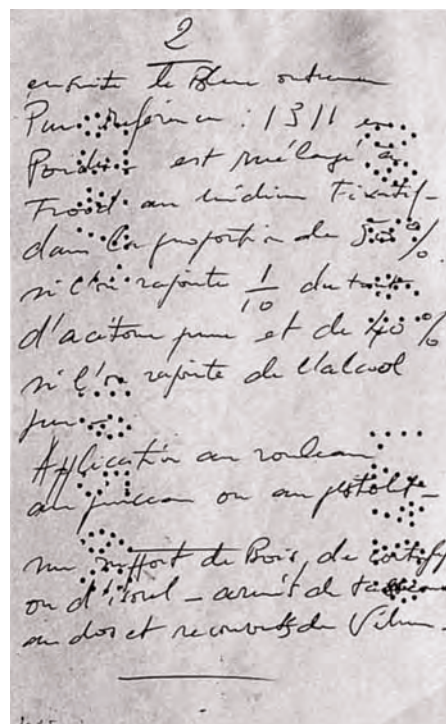 2
ensuite le Bleu outremer
Pur référence : 1311 en
Poudre est mélangé à
Froid au médium Fixatif -
dans la proportion de 50 %
si l'on rajoute 1/10 du tout
d'acétone pure et de 40 %
si l'on rajoute de l'alcool
pur
Application au rouleau
au pinceau ou au pistolet -
sur support de Bois, de
ou d'isorel - armit de
au dos et recouverts de